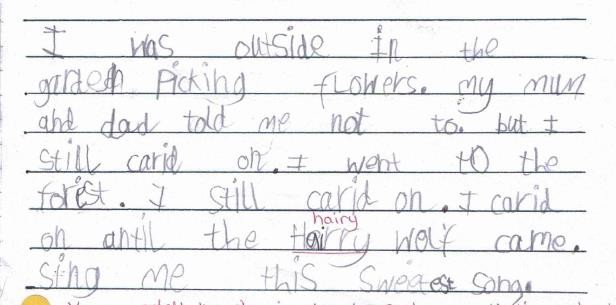 I was outside in the
garden picking flowers. my mum
and dad told me not to. but I
still carid on. I went to the
forest. I still carid on. I carid
hairy
on antil the Hairry wolf came.
Sing me this Sweetest song.